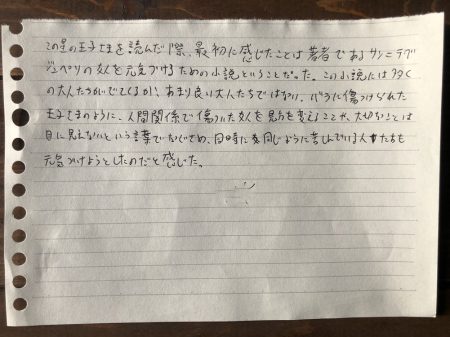 この星の王子さまを読んだ際、最初に感じたことは著者であるサンテグ
ジュペリの友人を元気づけるための小説ということだった。この小説には多く
の大人たちがでてくるが、あまり良い大人たちではない。バラに傷つけられた
王子さまのように、人間関係で傷ついた友人を見方を変えることや、大切なことは
目に見えないという言葉でなぐさめ、同時に同じように苦しんでいる人たちも
元気づけようとしたのだと感じた。